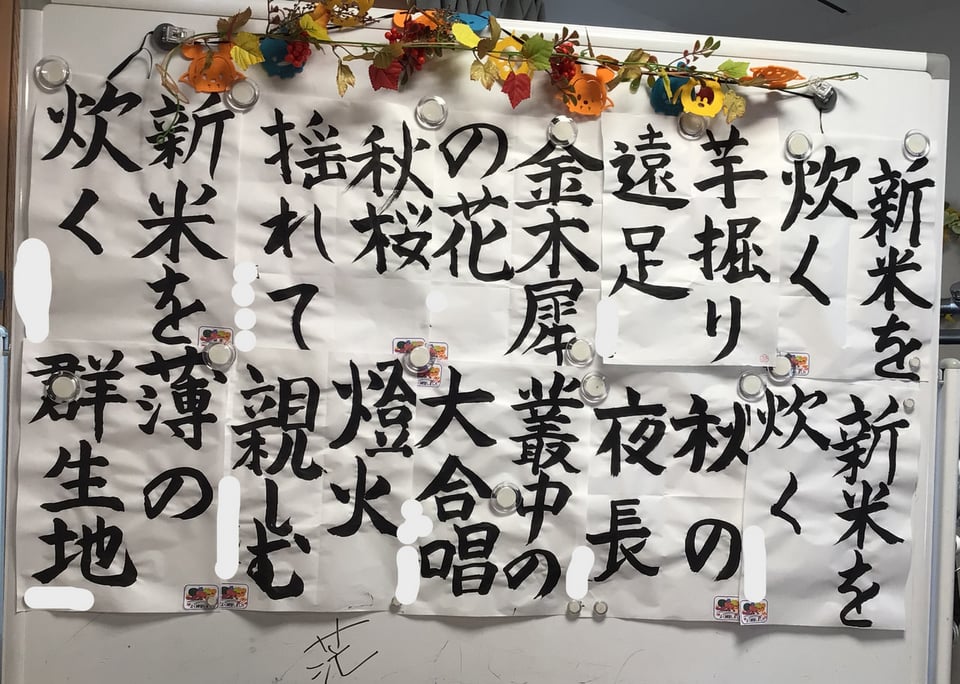 新米を
炊く
芋掘り
遠足
金木犀
の花
秋桜
揺れて
新米を
炊く
新米を
炊く
秋の
夜長
叢中の
大合唱
燈火
親しむ
薄の
群生地